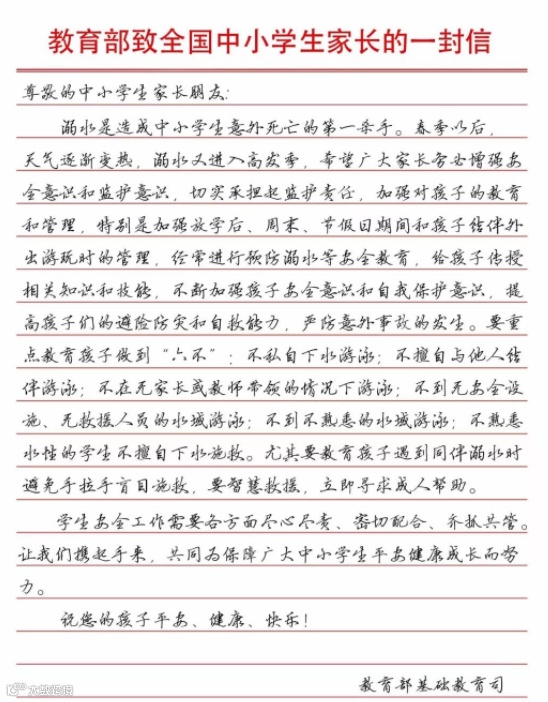 教育部致全国中小学生家长的一封信
尊敬的中小学生家长朋友:
溺水是造成中小学生意外死亡的第一杀手。春季以后,
天气逐渐变热,溺水又进入高发季,希望广大家长务必增强安
全意识和监护意识,切实承担起监护责任,加强对孩子的教育
和管理,特别是加强放学后、周末、节假日期间和孩子结伴外
出游玩时的管理,经常进行预防溺水等安全教育,给孩子传授
相关知识和技能,不断加强孩子安全意识和自我保护意识,提
高孩子们的避险防灾和自救能力,严防意外事故的发生。要重
点教育孩子做到“六不”:不私自下水游泳;不擅自与他人结
伴游泳;不在无家长或教师带领的情况下游泳;不到无安全设
施、无救援人员的水域游泳;不到不熟悉的水域游泳;不熟悉
水性的学生不擅自下水施救。尤其要教育孩子遇到同伴溺水时
避免手拉手盲目施救,要智慧救援,立即寻求成人帮助。
学生安全工作需要各方面尽心尽责、密切配合、齐抓共管。
让我们携起手来,共同为保障广大中小学生平安健康成长而努
力。
祝您的孩子平安、健康、快乐!
教育部基础教育司
大数据报